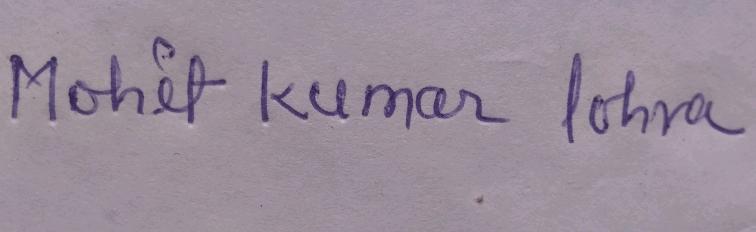 Mohit kumar lohra